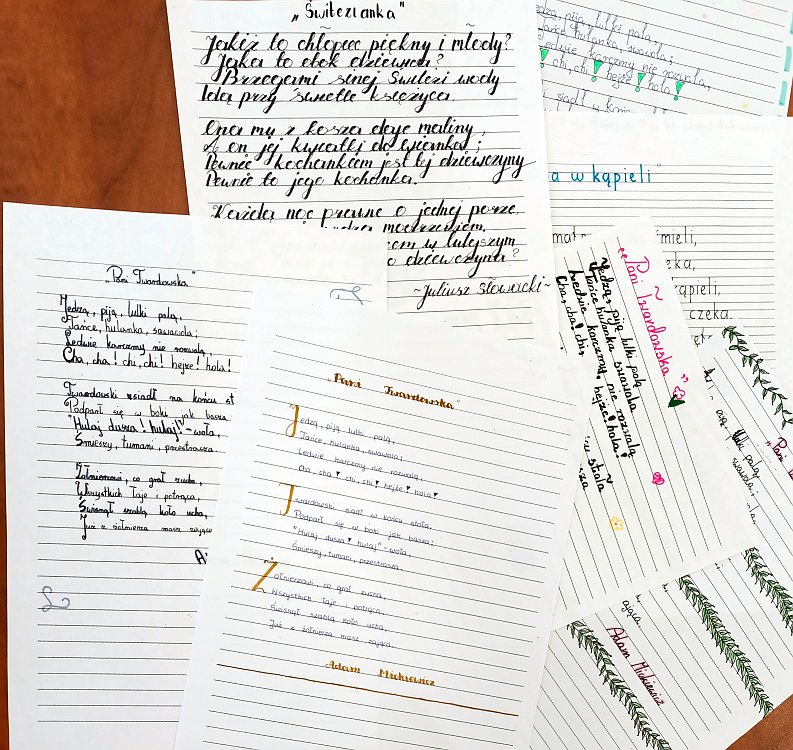 „Świtezianka"
Jakiż to chłopiec piękny i młody?
Jaka to obok dziewica?
Brzegami sinej Świtezi wody
Idą przy świetle księżyca.
Ona mu z kosza daje maliny,
A on jej kwiatki do wianka;
Pewnie kochankiem jest tej dziewczyny
Pewnie to jego kochanka.
Każdą noc prawie o jednej porze,
modrzewiem,
w tutejszym
dziewczyna?
~Juliusz Słowacki~
piją, lulki palą,
Tańce hulanka, swawola;
Ledwie karczmy nie rozwalą,
chi, chi! hejże! hola!
siadł w końcu
w kąpieli"
mieli,
eka,
kąpieli,
czeka.
"Pani Twardowska"
Jedzą, piją lulki palą
Tańce hulanka swawola
Ledwie karczmy nie rozwalą
Cha, cha! chi, hejże! hola!
stoła
„Pani Twardowska"
Jedzą, piją, lulki palą,
Tańce, hulanka, sawawola;
Ledwie karczmy nie rozwalą,
Cha, cha! chi, chi! hejże! hola!
Twardowski siadł na końcu st
Podparł się w boki jak basza
"Hulaj dusza! hulaj!"-woła,
Śmieszy, tumani, przestrasza.
Żołnierzowi, co grał zucha,
Wszystkich łaje i potrąca,
Świsnął szablą koło ucha,
Już z żołnierza masz zająca
A
„Pani Twardowska"
Jedzą, piją lulki palą,
Tańce, hulanka, swawola;
Ledwie karczmy nie rozwalą,
Cha, cha! chi, chi! hejże! hola!
Twardowski siadł w końcu stoła,
Podparł się w boki jak basza;
"Hulaj dusza! hulaj"-woła,
Śmieszy, tumani, przestrasza.
Żołnierzowi, co grał zucha,
Wszystkich łaje i potrąca,
Świsnął szablą koło ucha,
Już z żołnierza masz zająca.
Adam Mickiewicz
"Pani
lulki palą,
swawola;
ająca
Adam Mickiewicz